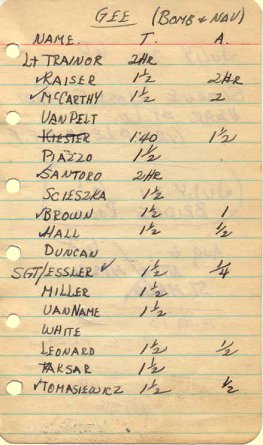 GEE (BOMB & NAV)
NAME. T. A.
Lt TRAINOR 2HR
✓KAISER 1½ 2HR
✓McCARTHY 1½ 2
VAN PELT
KIESTER 1'40 1½
PIAZZO 1½
✓SANTORO 2HR
SCIESZKA 1½
✓BROWN 1½ 1
✓HALL 1½ ½
DUNCAN
SGT/ESSLER ✓ 1½ ¼
MILLER 1½
VAN NAME 1½
WHITE
LEONARD 1½ ½
TAKSAR 1½
✓TOMASIEWICZ 1½ ½